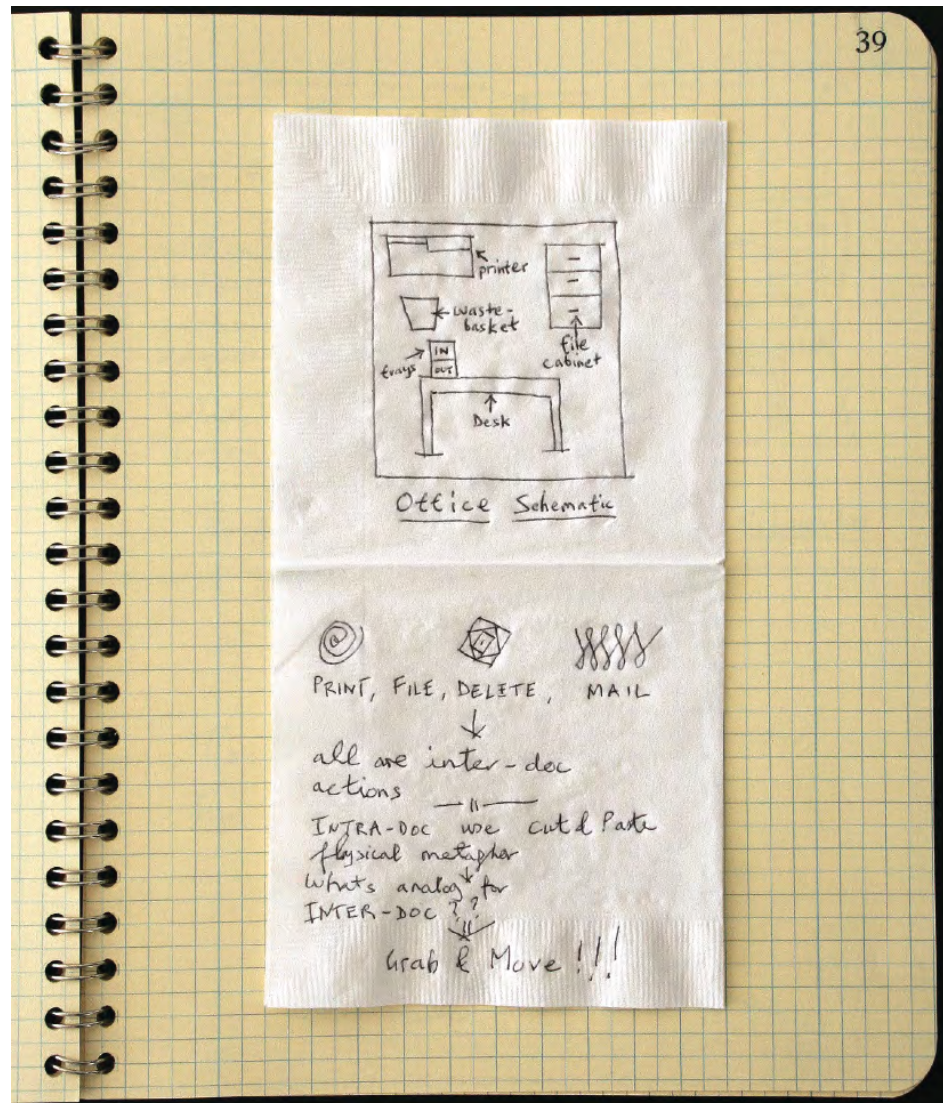 39
printer
waste-
basket
file
cabinet
trays
IN
OUT
Desk
Office Schematic
PRINT, FILE, DELETE, MAIL
all are inter-doc
actions
INTRA-DOC we cut & Paste
physical metaphor
What's analog for
INTER-DOC ??
Grab & Move!!!